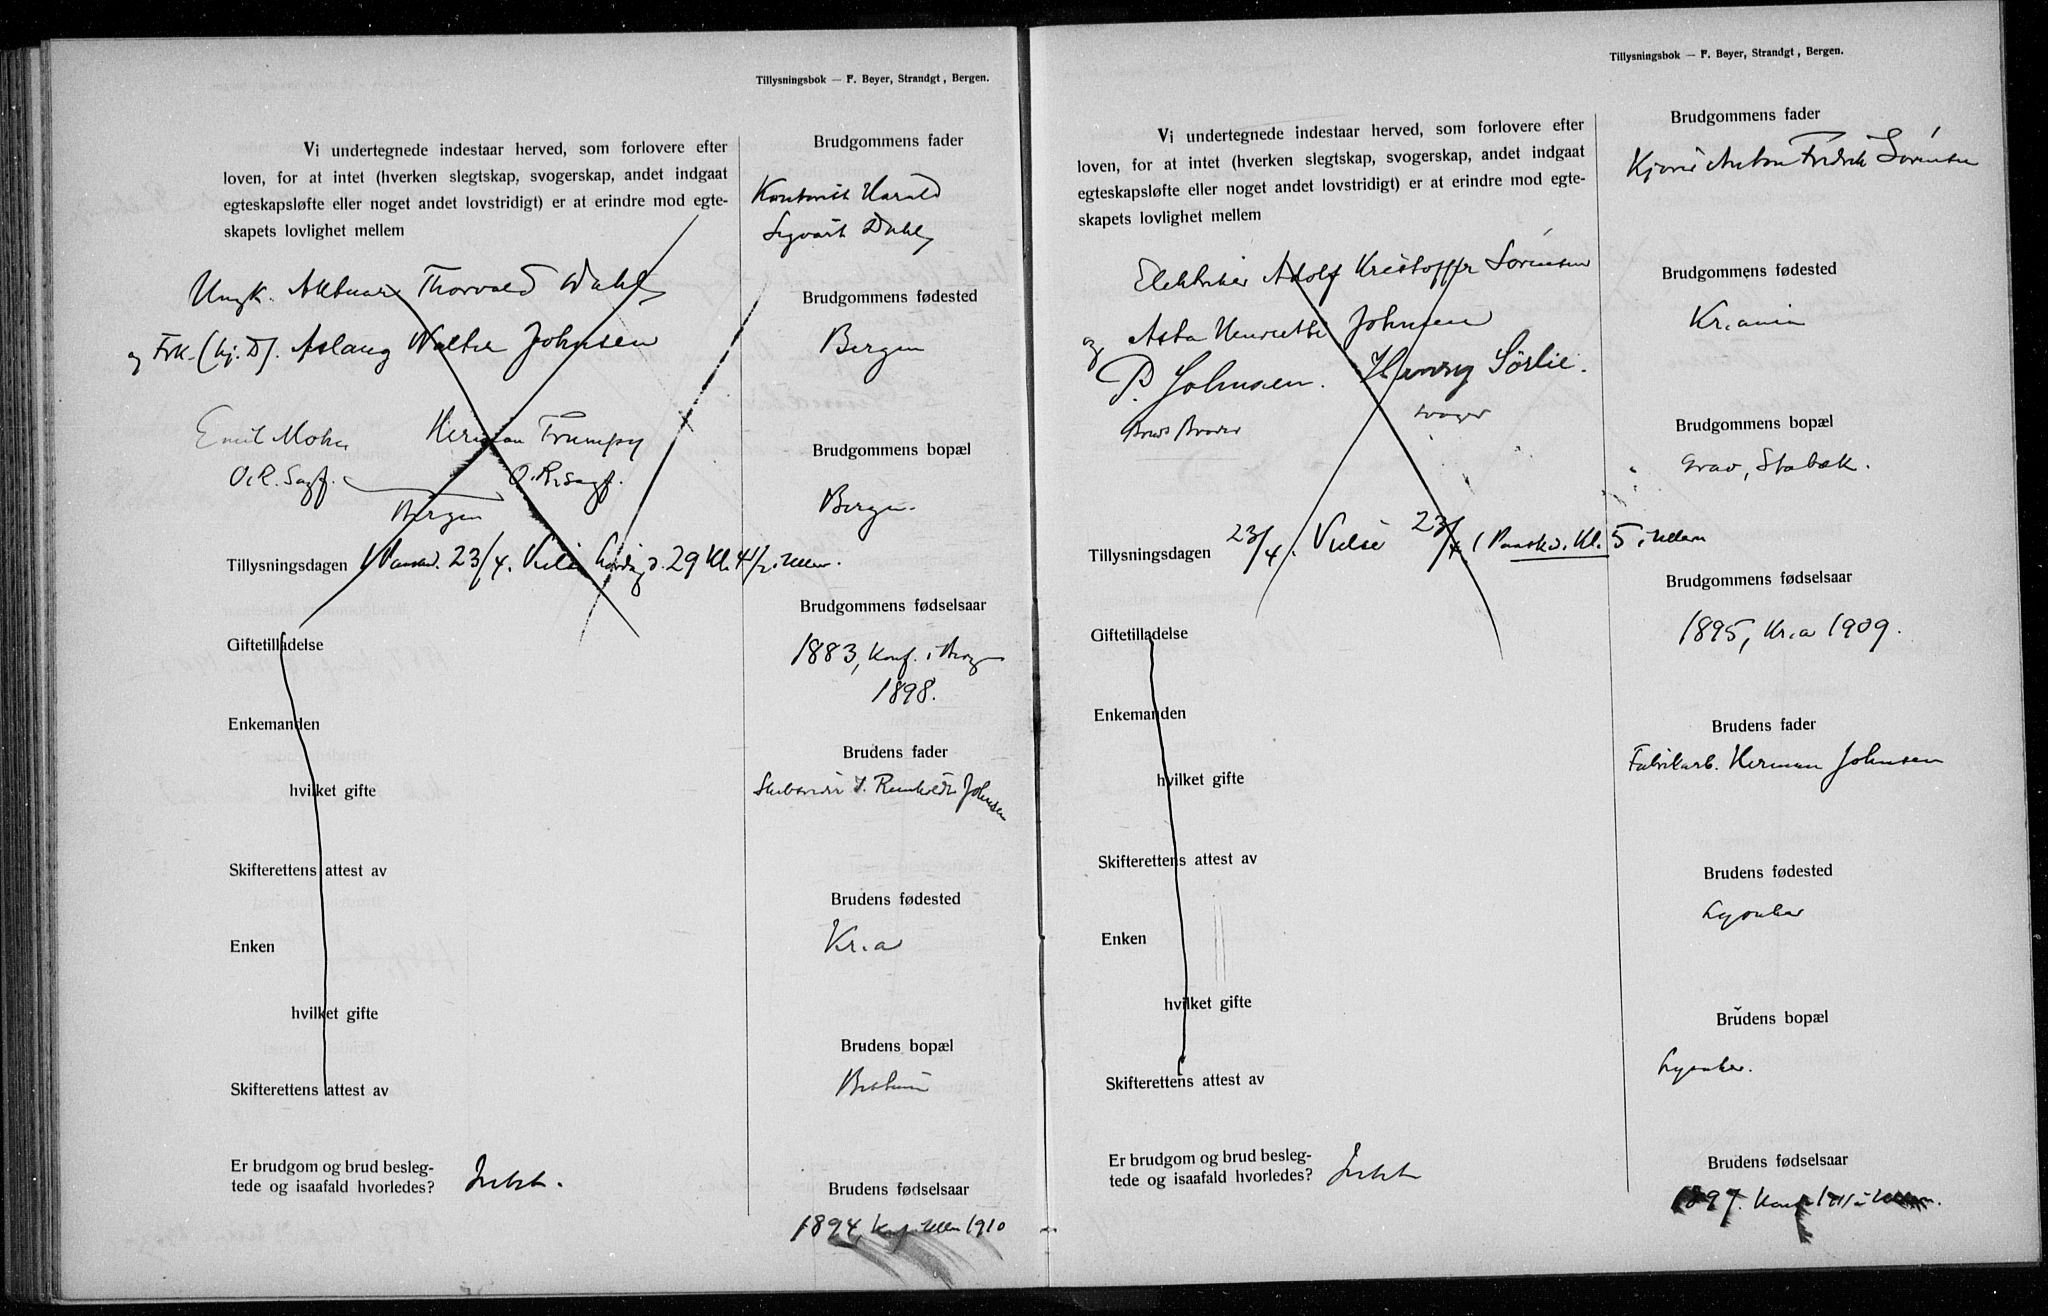 Tillysningsbok — F. Beyer, Strandgt, Bergen.
Vi undertegnede indestaar herved, som forlovere efter
loven, for at intet (hverken slegtskap, svogerskap, andet indgaat
egteskapsløfte eller noget andet lovstridigt) er at erindre mod egte-
skapets lovlighet mellem
Ungk. Aktuar Thorvald Dahl
og Frk. (hj. D). Aslaug Johnsen
Emil Mohr Herman Trumpy
O.R. Sagf. O.R. Sagf.
Bergen
Tillysningsdagen 23/4. Vielse Lørdag d. 29 Kl. 4 1/2 i Ullern.
Giftetilladelse
Enkemanden
hvilket gifte
Skifterettens attest av
Enken
hvilket gifte
Skifterettens attest av
Er brudgom og brud besleg-
tede og isaafald hvorledes? Intet.
Brudgommens fader
Harald
Sigvart Dahl
Brudgommens fødested
Bergen
Brudgommens bopæl
Bergen.
Brudgommens fødselsaar
1883, Konf. i Berg
1898.
Brudens fader
Johnsen
Brudens fødested
Kr.a
Brudens bopæl
Bestum
Brudens fødselsaar
1894, Konf. Ullern 1910
Tillysningsbok — F. Beyer, Strandgt, Bergen.
Vi undertegnede indestaar herved, som forlovere efter
loven, for at intet (hverken slegtskap, svogerskap, andet indgaat
egteskapsløfte eller noget andet lovstridigt) er at erindre mod egte-
skapets lovlighet mellem
Elektriker Adolf Kristoffer Sørensen
og Asta Henriette Johnsen
P. Johnsen. Henry Sørlie.
Bruds Broder svoger
Tillysningsdagen 23/4. Vielse 23/4 Kl. 5 i Ullern
Giftetilladelse
Enkemanden
hvilket gifte
Skifterettens attest av
Enken
hvilket gifte
Skifterettens attest av
Er brudgom og brud besleg-
tede og isaafald hvorledes? Intet
Brudgommens fader
Anton Fredrik Sørensen
Brudgommens fødested
Kr.ania
Brudgommens bopæl
Grav, Stabæk.
Brudgommens fødselsaar
1895, Kr.a 1909.
Brudens fader
Fabrikarb. Herman Johnsen
Brudens fødested
Lysaker
Brudens bopæl
Lysaker.
Brudens fødselsaar
1897. Konf 1911 i Ullern.